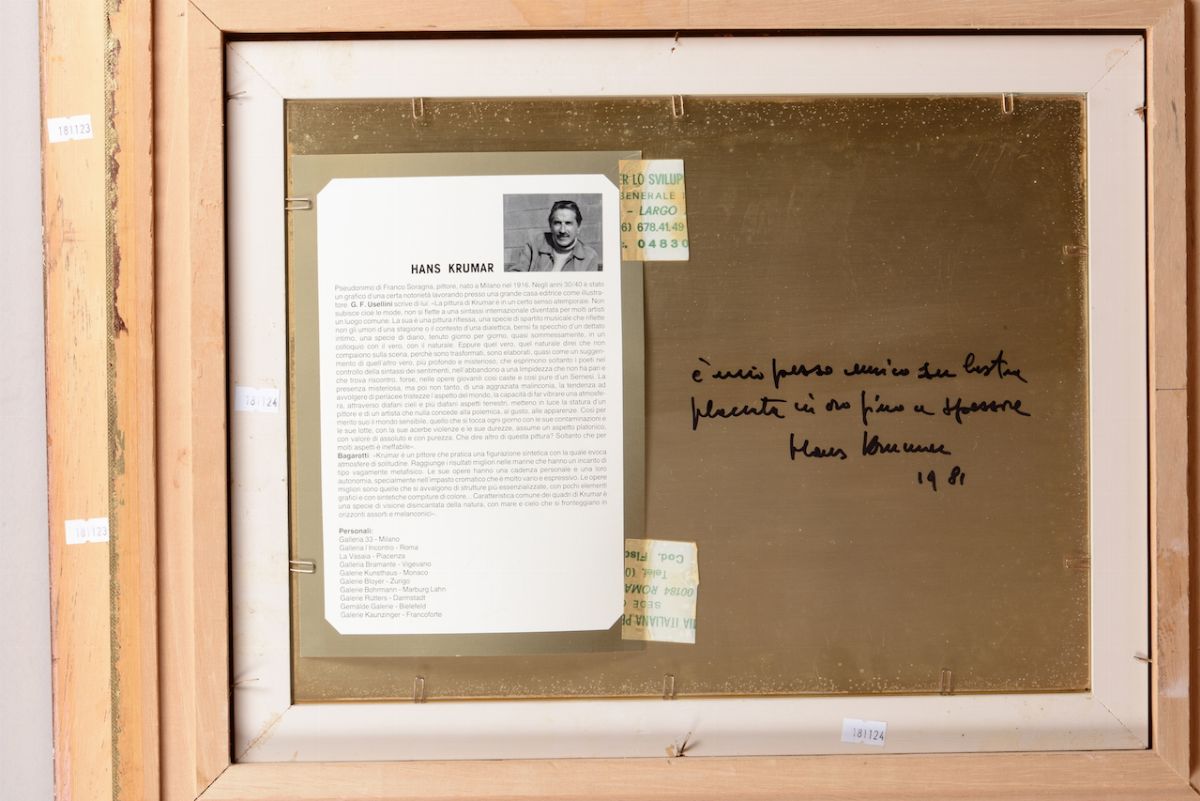 181123
181124
181123
HANS KRUMAR
Pseudonimo di Franco Soragna, pittore, nato a Milano nel 1916. Negli anni 30/40 è stato
un grafico d'una certa notorietà lavorando presso una grande casa editrice come illustra-
tore. G. F. Usellini scrive di lui: «La pittura di Krumar è in un certo senso atemporale. Non
subisce cioè le mode, non si flette a una sintassi internazionale diventata per molti artisti
un luogo comune. La sua è una pittura riflessa, una specie di spartito musicale che riflette
non gli umori d'una stagione o il contesto d'una dialettica, bensì fa specchio d'un dettato
intimo, una specie di diario, tenuto giorno per giorno, quasi sommessamente, in un
colloquio con il vero, con il naturale. Eppure quel vero, quel naturale direi che non
compaiono sulla scena, perchè sono trasformati, sono elaborati, quasi come un suggeri-
mento di quell'altro vero, più profondo e misterioso, che esprimono soltanto i poeti nel
controllo della sintassi dei sentimenti, nell'abbandono a una limpidezza che non ha pari e
che trova riscontro, forse, nelle opere giovanili così caste e così pure d'un Sernesi. La
presenza misteriosa, ma poi non tanto, di una aggraziata malinconia, la tendenza ad
avvolgere di perlacee tristezze l'aspetto del mondo, la capacità di far vibrare una atmosfe-
ra, attraverso diafani cieli e più diafani aspetti terrestri, mettono in luce la statura d'un
pittore e di un artista che nulla concede alla polemica, al gusto, alle apparenze. Così per
merito suo il mondo sensibile, quello che si tocca ogni giorno con le sue contaminazioni e
le sue lotte, con la sue acerbe violenze e le sue durezze, assume un aspetto platonico,
con valore di assoluto e con purezza. Che dire altro di questa pittura? Soltanto che per
molti aspetti è ineffabile».
Bagarotti: «Krumar è un pittore che pratica una figurazione sintetica con la quale evoca
atmosfere di solitudine. Raggiunge i risultati migliori nelle marine che hanno un incanto di
tipo vagamente metafisico. Le sue opere hanno una cadenza personale e una loro
autonomia, specialmente nell'impasto cromatico che è molto vario e espressivo. Le opere
migliori sono quelle che si avvalgono di strutture più essenzializzate, con pochi elementi
grafici e con sintetiche compiture di colore... Caratteristica comune dei quadri di Krumar è
una specie di visione disincantata della natura, con mare e cielo che si fronteggiano in
orizzonti assorti e melanconici».
Personali:
Galleria 33 - Milano
Galleria l'Incontro - Roma
La Vasaia - Piacenza
Galleria Bramante - Vigevano
Galerie Kunsthaus - Monaco
Galerie Bloyer - Zurigo
Galerie Bohrmann - Marburg Lahn
Galerie Rütters - Darmstadt
Gemälde Galerie - Bielefeld
Galerie Kaunzinger - Francoforte
ER LO SVILUP
GENERALE
- LARGO
6) 678.41.49
. 04830
Cod. Fisc
Telef. (0
00184 ROMA
SEDE
IA ITALIANA PE
è mio pezzo unico su lastra
placcata in oro fino a spessore
Hans Krumar
1981
181124